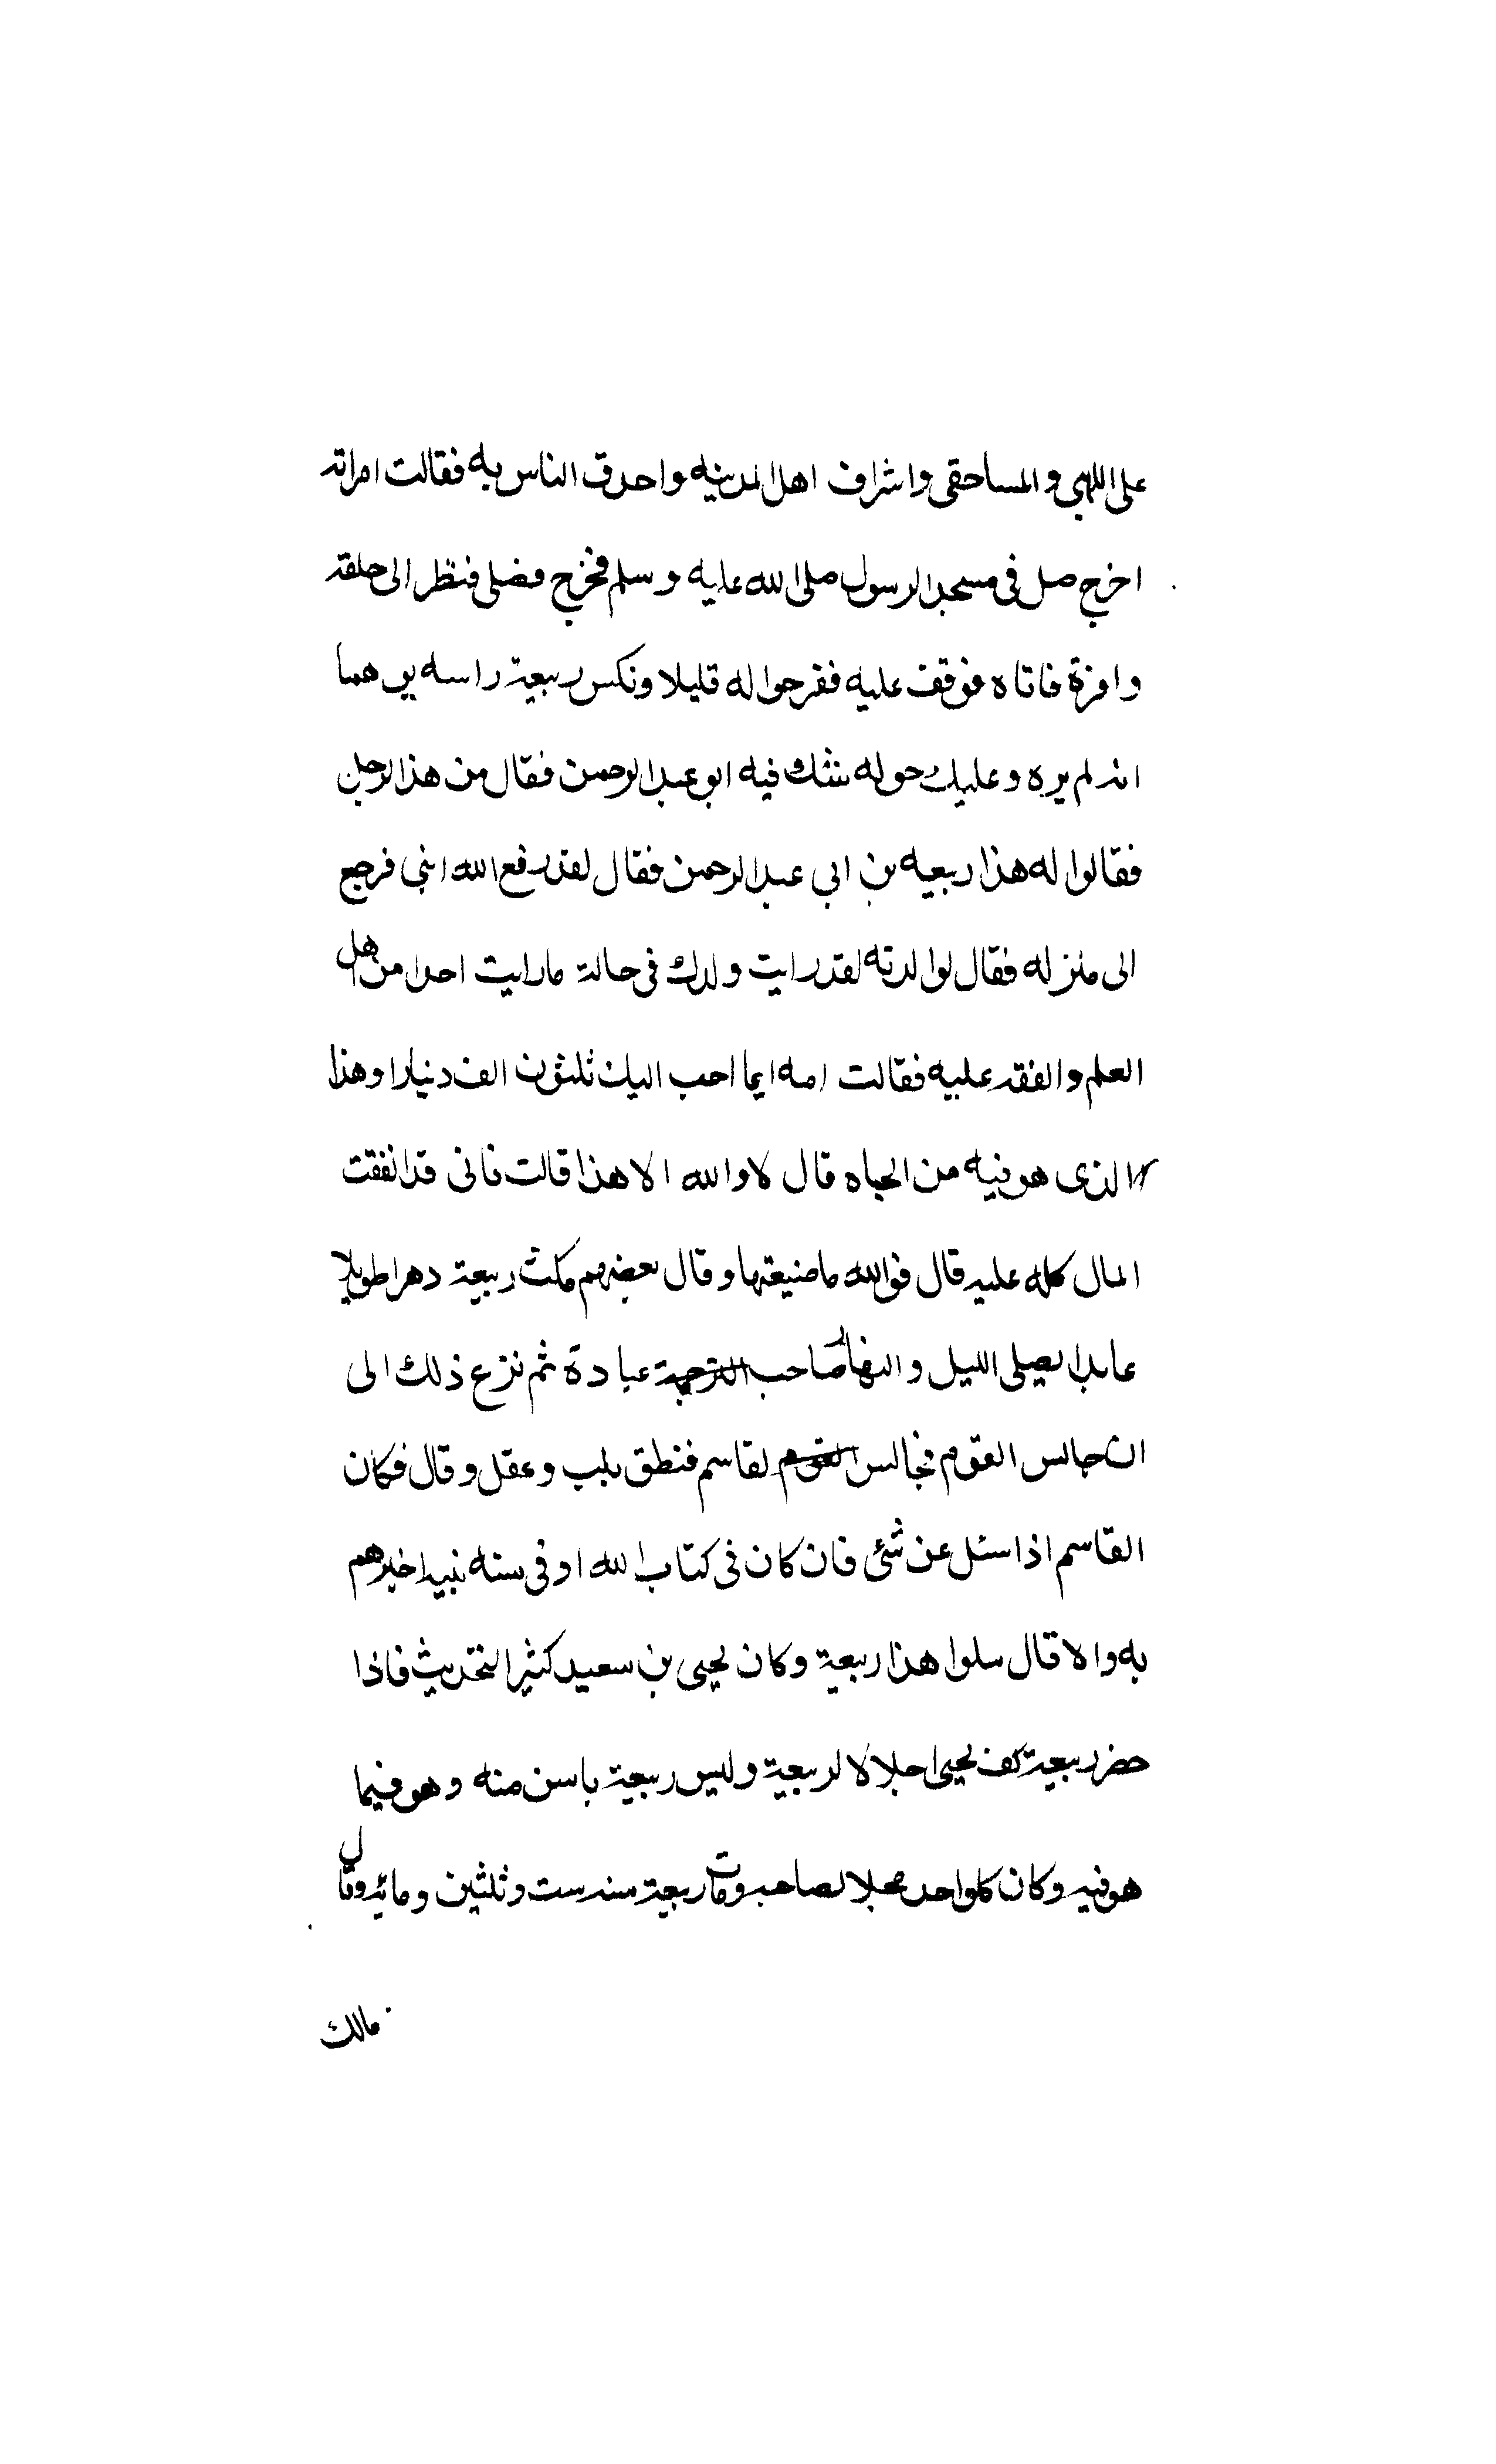 على اللهبي والمساحقى واشراف اهل المدينه واحدق الناس به فقالت امراته
اخرج صل فى مسجد الرسول صلى الله عليه وسلم فخرج فصلى فنظر الى حلقة
وافرة فاتاه فوقف عليه ففرجوا له قليلا ونكس ربيعة راسه يوهما
انه لم يره وعليك حوله شك فيه ابو عبد الرحمن فقال من هذا الرجل
فقالوا له هذا ربيعه بن ابى عبد الرحمن فقال لقد رفع الله ابنى فرجع
الى منزله فقال لوالدته لقد رايت ولدك فى حالة ما رايت احدا من اهل
العلم والفقه عليه فقالت امه ايما احب اليك ثلثون الف دنيارا وهذا
الذى هو فيه من الجاه قال لا والله الا هذا قالت فانى قد انفقت
المال كله عليه قال فوالله ما ضيعتها وقال بعضهم مكث ربيعة دهرا طويلا
عابدا يصلى الليل والنهار صاحب الترجمة عبادة ثم نزع ذلك الى
ان جالس القوم فجالس القوم لقاسم فنطق بلب وعقل وقال فكان
القاسم اذا سئل عن شئى فان كان فى كتاب الله او فى سنه نبيه اخبرهم
به والا قال سلوا هذا ربيعة وكان يحيى بن سعيد كثير التحديث فاذا
حضر ربيعة كف يحيى اجلالا لربيعة وليس ربيعة باسن منه وهو فيما
هو فيه وكان كل واحد مجلا لصاحبه ومات ربيعة سنه ست وثلثين ومائه وقال
مالك